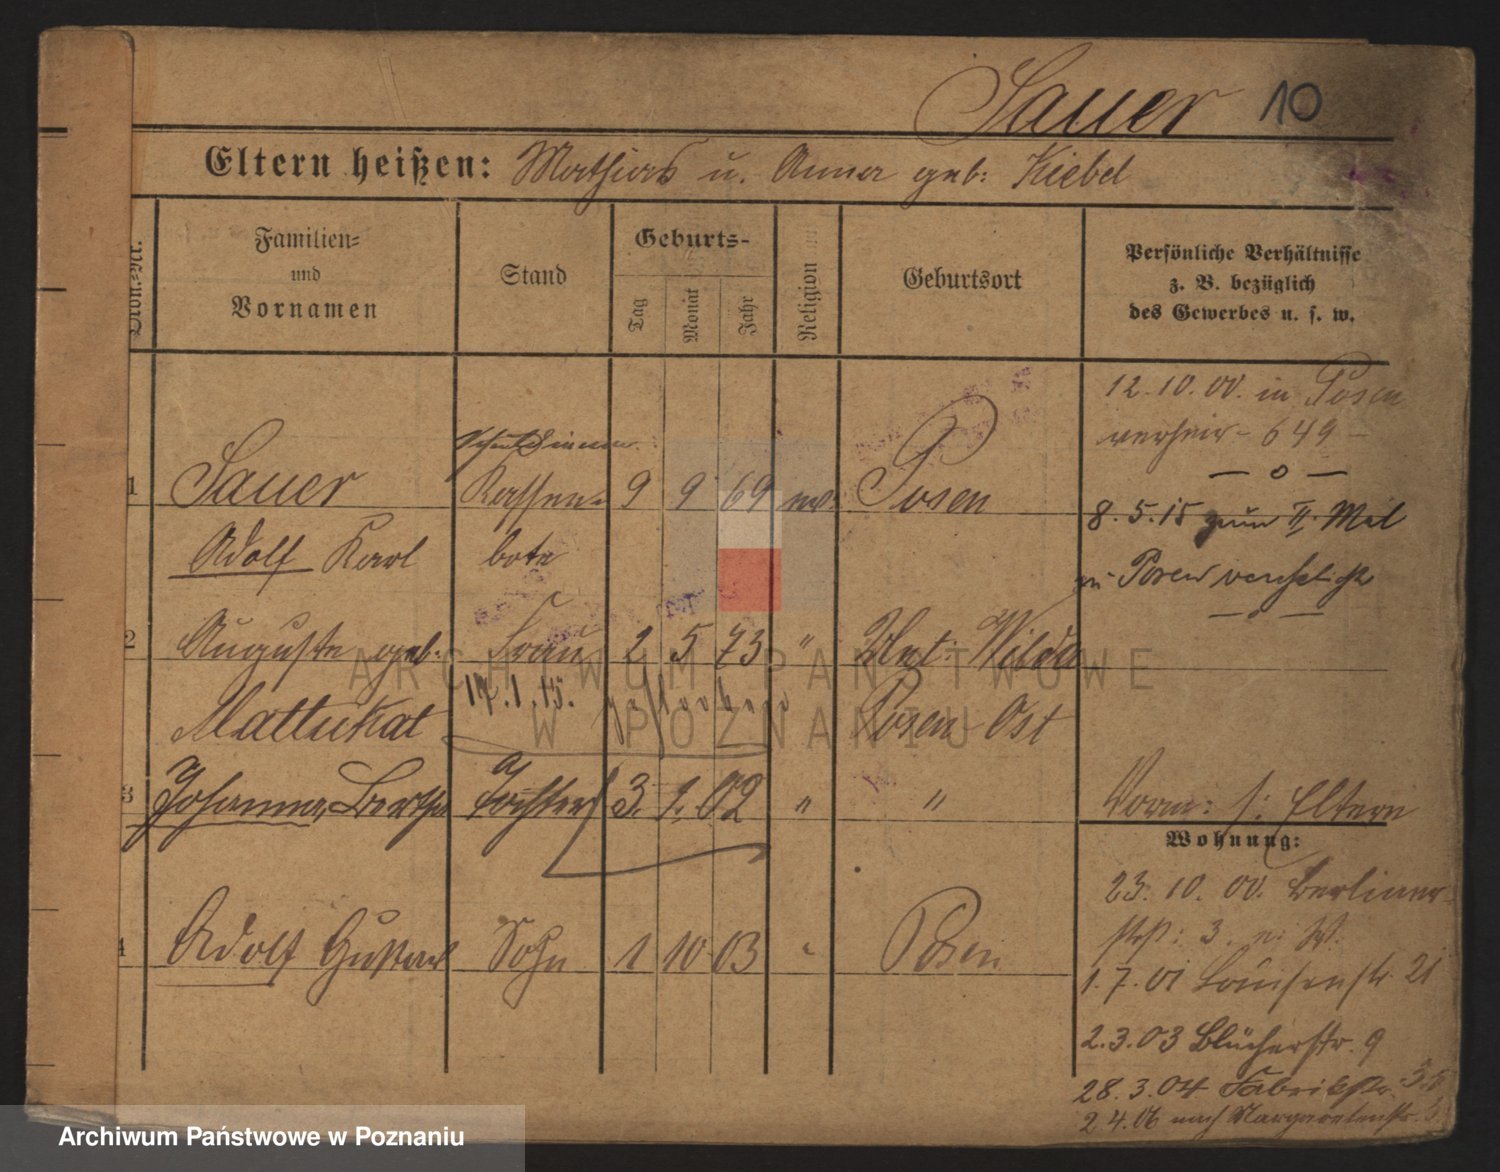 Sauer 10
Eltern heißen: Mathias u. Anna geb: Kiebel
Familien=
und
Vornamen
Stand
Geburts-
Tag
Monat
Jahr
Religion
Geburtsort
Persönliche Verhältnisse
z. B. bezüglich
des Gewerbes u. s. w.
12.10.00. in Posen
verheir - 649 -
— o —
Schuldiener
1 Sauer Kassen= 9 9 69 ev. Posen
8.5.15 zum II. Mal
Adolf Karl bote
zu Posen verehelicht
— o —
2 Auguste geb. Frau 2 5 73 " Unt: Wilda
Mattukat 17.1.15. gestorben Posen Ost
3 Johanna, Bertha Tochter 3. 1. 02 " "
Vorm: s: Eltern
Wohnung:
23. 10. 00. Berliner-
str: 3. n: W.
4 Adolf Gustav Sohn 1 10 03 " Posen
1.7.01 Louisenstr. 21
2.3.03 Blücherstr. 9
28.3.04 Fabrikstr.
2 4.06 nach Margaretenstr.
ARCHIWUM PAŃSTWOWE
W POZNANIU
Archiwum Państwowe w Poznaniu